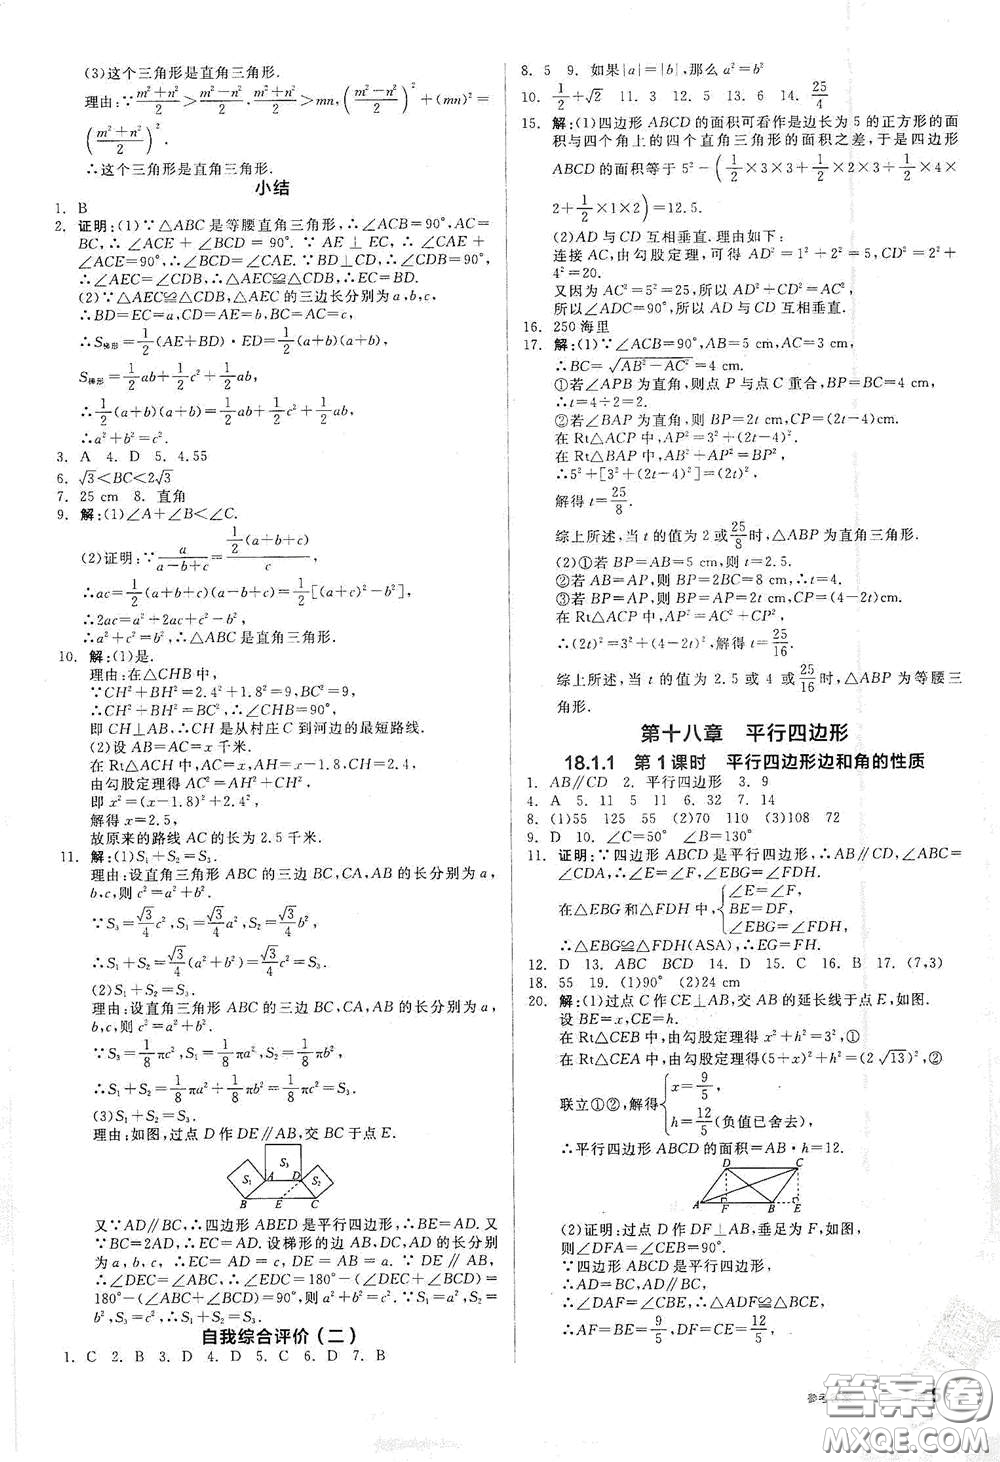 (3)这个三角形是直角三角形.
理由:∵(m²+n²)/2>(m²-n²)/2,(m²+n²)/2>mn,((m²-n²)/2)²+(mn)²=
((m²+n²)/2)².
∴这个三角形是直角三角形.
小结
1. B
2. 证明:(1)∵△ABC是等腰直角三角形,∴∠ACB=90°,AC=
BC,∴∠ACE+∠BCD=90°.∵AE⊥EC,∴∠CAE+
∠ACE=90°,∴∠BCD=∠CAE.∵BD⊥CD,∴∠CDB=90°,
∴∠AEC=∠CDB,∴△AEC≌△CDB,∴EC=BD.
(2)∵△AEC≌△CDB,△AEC的三边长分别为a,b,c,
∴BD=EC=a,CD=AE=b,BC=AC=c,
∴S梯形=1/2(AE+BD)·ED=1/2(a+b)(a+b),
S梯形=1/2ab+1/2c²+1/2ab,
∴1/2(a+b)(a+b)=1/2ab+1/2c²+1/2ab,
∴a²+b²=c².
3. A 4. D 5. 4.55
6. √3<BC<2√3
7. 25 cm 8. 直角
9. 解:(1)∠A+∠B<∠C.
(2)证明:∵a/(a-b+c)=(1/2(a+b+c))/c,
∴ac=1/2(a+b+c)(a-b+c)=1/2[(a+c)²-b²],
∴2ac=a²+2ac+c²-b²,
∴a²+c²=b²,∴△ABC是直角三角形.
10. 解:(1)是.
理由:在△CHB中,
∵CH²+BH²=2.4²+1.8²=9,BC²=9,
∴CH²+BH²=BC²,∴∠CHB=90°,
即CH⊥AB,∴CH是从村庄C到河边的最短路线.
(2)设AC=AB=x千米.
在Rt△ACH中,AC=x,AH=x-1.8,CH=2.4,
由勾股定理得AC²=AH²+CH²,
即x²=(x-1.8)²+2.4²,
解得x=2.5,
故原来的路线AC的长为2.5千米.
11. 解:(1)S₁+S₂=S₃.
理由:设直角三角形ABC的三边BC,CA,AB的长分别为a,
b,c,则c²=a²+b².
∵S₃=√3/4c²,S₁=√3/4a²,S₂=√3/4b²,
∴S₁+S₂=√3/4(a²+b²)=√3/4c²=S₃.
(2)S₁+S₂=S₃.
理由:设直角三角形ABC的三边BC,CA,AB的长分别为a,
b,c,则c²=a²+b².
∵S₃=1/8πc²,S₁=1/8πa²,S₂=1/8πb²,
∴S₁+S₂=1/8πa²+1/8πb²=1/8πc²=S₃.
(3)S₁+S₂=S₃.
理由:如图,过点D作DE∥AB,交BC于点E.
S₃
S₁ A D S₂
B E C
又∵AD∥BC,∴四边形ABED是平行四边形,∴BE=AD.又
∵BC=2AD,∴EC=AD.设梯形的边AD,DC,AB的长分别
为c,a,b,∴EC=AD=c,DE=AB=b.∵DE∥AB,
∴∠DEC=∠ABC,∴∠EDC=180°-(∠DEC+∠BCD)=
180°-(∠ABC+∠BCD)=90°,则c²=a²+b².∵S₁=b²,S₂=
a²,S₃=c²,∴S₁+S₂=S₃.
自我综合评价(二)
1. C 2. B 3. D 4. D 5. C 6. D 7. B
8. 5 9. 如果|a|=|b|,那么a²=b²
10. 1/2+√2 11. 3 12. 5 13. 6 14. 25/4
15. 解:(1)四边形ABCD的面积可看作是边长为5的正方形的面
积与四个角上的四个直角三角形的面积之差,于是四边形
ABCD的面积等于5²-(1/2×3×3+1/2×2×3+1/2×4×
2+1/2×1×2)=12.5.
(2)AD与CD互相垂直.理由如下:
连接AC,由勾股定理,可得AD²=1²+2²=5,CD²=2²+
4²=20.
又因为AC²=5²=25,所以AD²+CD²=AC²,
所以∠ADC=90°,所以AD与CD互相垂直.
16. 250海里
17. 解:(1)∵∠ACB=90°,AB=5 cm,AC=3 cm,
∴BC=√(AB²-AC²)=4 cm.
①若∠APB为直角,则点P与点C重合,BP=BC=4 cm,
∴t=4÷2=2.
②若∠BAP为直角,则BP=2t cm,CP=(2t-4)cm.
在Rt△ACP中,AP²=3²+(2t-4)².
在Rt△BAP中,AB²+AP²=BP²,
∴5²+[3²+(2t-4)²]=(2t)².
解得t=25/8.
综上所述,当t的值为2或25/8时,△ABP为直角三角形.
(2)①若BP=AB=5 cm,则t=2.5.
②若AB=AP,则BP=2BC=8 cm,t=4.
③若BP=AP,则BP=AP=2t cm,CP=(4-2t)cm.
在Rt△ACP中,AP²=AC²+CP²,
∴(2t)²=3²+(4-2t)²,解得t=25/16.
综上所述,当t的值为2.5或4或25/16时,△ABP为等腰三
角形.
第十八章 平行四边形
18.1.1 第1课时 平行四边形边和角的性质
1. AB∥CD 2. 平行四边形 3. 9
4. A 5. 11 5 11 6. 32 7. 14
8. (1)55 125 55 (2)70 110 (3)108 72
9. D 10. ∠C=50° ∠B=130°
11. 证明:∵四边形ABCD是平行四边形,∴AB∥CD,∠ABC=
∠CDA,∴∠EBG=∠FDH.
在△EBG和△FDH中,{∠E=∠F,
BE=DF,
∠EBG=∠FDH,
∴△EBG≌△FDH(ASA),∴EG=FH.
12. D 13. ABC BCD 14. D 15. C 16. B 17. (7,3)
18. 55 19. (1)90° (2)24 cm
20. 解:(1)过点C作CE⊥AB,交AB的延长线于点E,如图.
设BE=x,CE=h.
在Rt△CEB中,由勾股定理得x²+h²=3²,①
在Rt△CEA中,由勾股定理得(5+x)²+h²=(2√13)²,②
联立①②,解得{x=9/5,
h=12/5(负值已舍去),
∴平行四边形ABCD的面积=AB·h=12.
D C
A F B E
(2)证明:过点D作DF⊥AB,垂足为F,如图,
则∠DFA=∠CEB=90°.
∵四边形ABCD是平行四边形,
∴AD=BC,AD∥BC,
∴∠DAF=∠CBE,∴△ADF≌△BCE,
∴AF=BE=9/5,DF=CE=12/5,
参考
答案圈
MXQE.COM